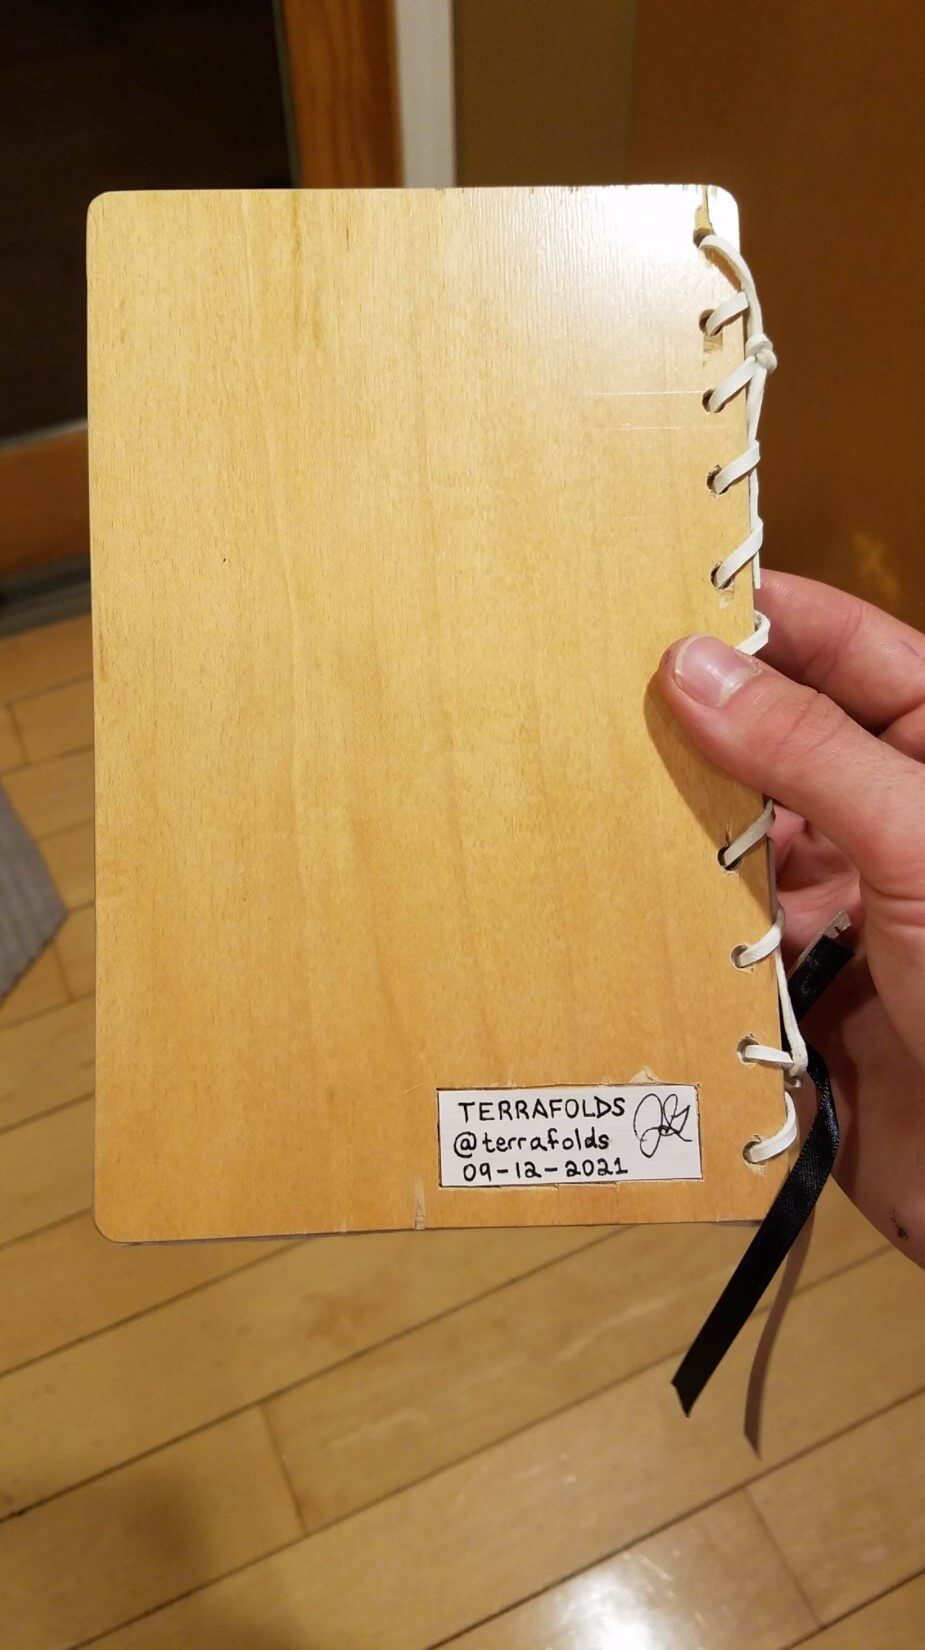 TERRAFOLDS
@terrafolds
09-12-2021